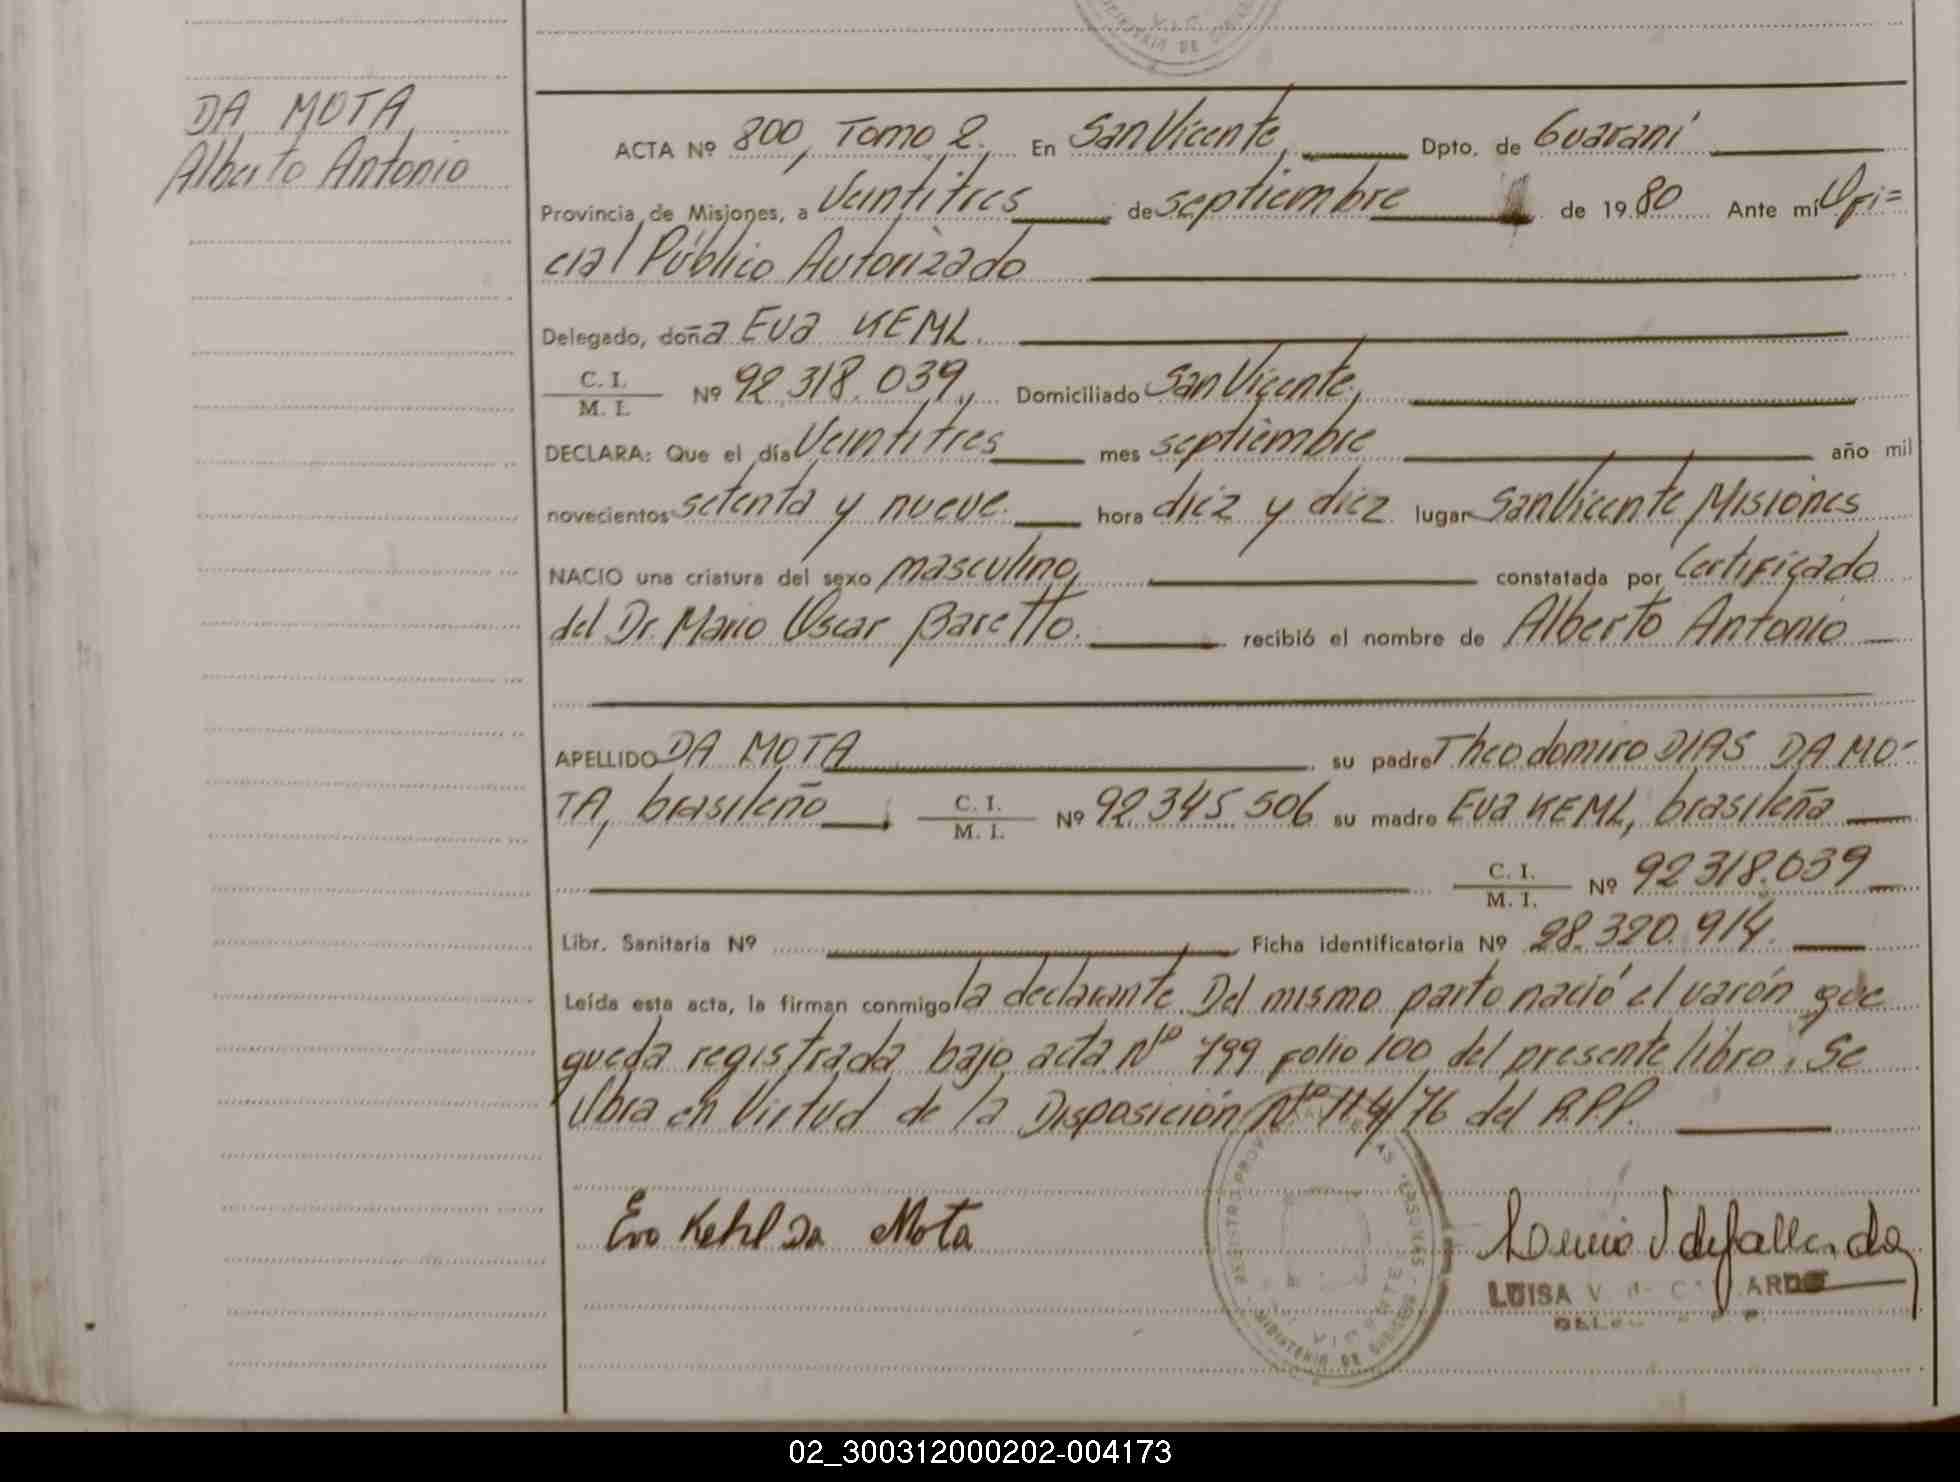 DA MOTA,
Alberto Antonio
ACTA Nº 800, Tomo 2. En San Vicente, Dpto. de Guaraní
Provincia de Misiones, a Veintitres de septiembre de 1980 Ante mí Ofi=
cial Público Autorizado
Delegado, doña Eva KEML
C. I. / M. I. Nº 92.318.039, Domiciliado San Vicente,
DECLARA: Que el día Veintitres mes septiembre año mil
novecientos setenta y nueve. hora diez y diez lugar San Vicente Misiones
NACIO una criatura del sexo masculino, constatada por Certificado
del Dr. Mario Oscar Baretto. recibió el nombre de Alberto Antonio
APELLIDO DA MOTA su padre Theodomiro DIAS DA MO-
TA, brasileño C. I. / M. I. Nº 92.345.506 su madre Eva KEML, brasileña
C. I. / M. I. Nº 92.318.039
Libr. Sanitaria Nº Ficha identificatoria Nº 28.320.914.
Leída esta acta, la firman conmigo la declarante. Del mismo parto nació el varón que
queda registrada bajo acta Nº 799 folio 100 del presente libro. Se
libra en Virtud de la Disposición Nº 114/76 del R.P.P.
Eva Kehl Da Mota
LUISA V.
MINISTERIO DE GOBIERNO
02_300312000202-004173